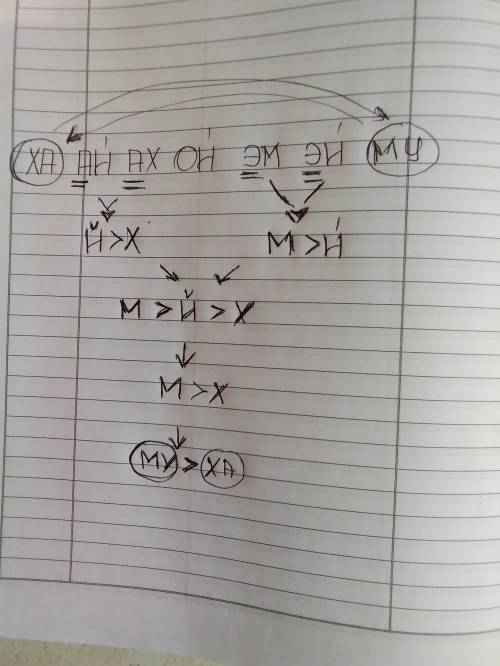 ХА АЙ АХ ОЙ ЭМ ЭЙ МУ
Й>Х М>Й
М>Й>Х
М>Х
МУ>ХА